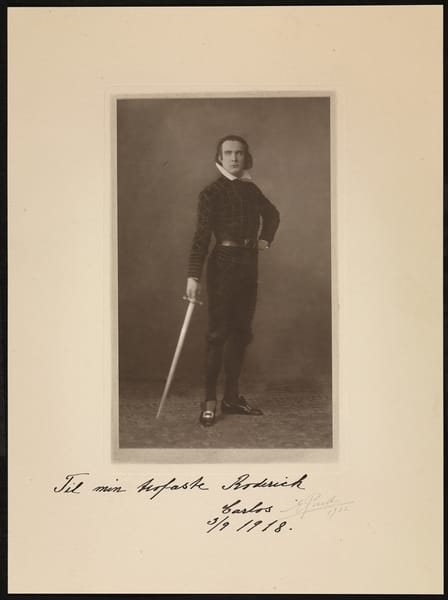 Til min trofaste Roderick
Carlos
3/9 1918.